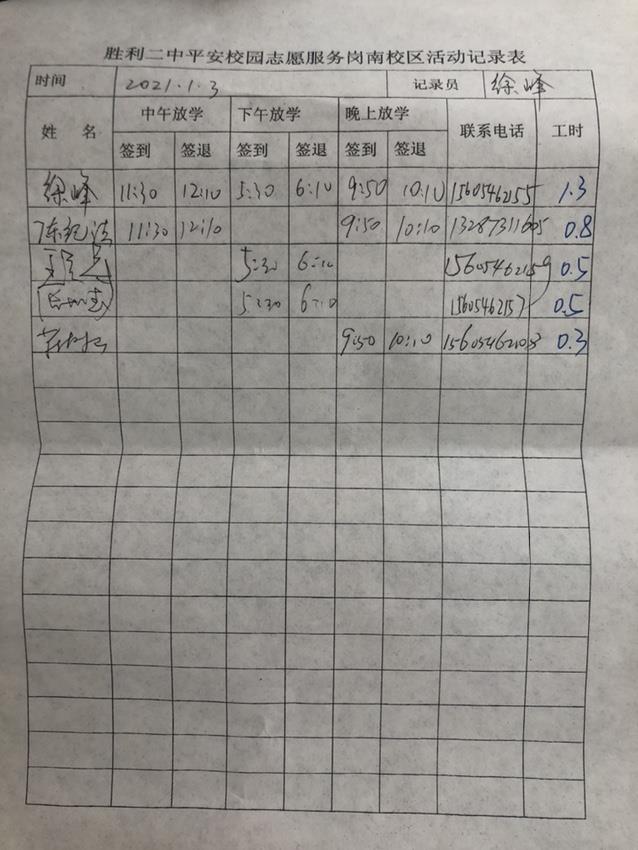 胜利二中平安校园志愿服务岗南校区活动记录表
时间 2021.1.3 记录员 徐峰
姓名 中午放学 下午放学 晚上放学 联系电话 工时
签到 签退 签到 签退 签到 签退
徐峰 11:30 12:10 5:30 6:10 9:50 10:10 15605462155 1.3
11:30 12:10 9:50 10:10 13287311605 0.8
5:30 6:10 15605462159 0.5
5:30 6:10 15605462157 0.5
9:50 10:10 0.3